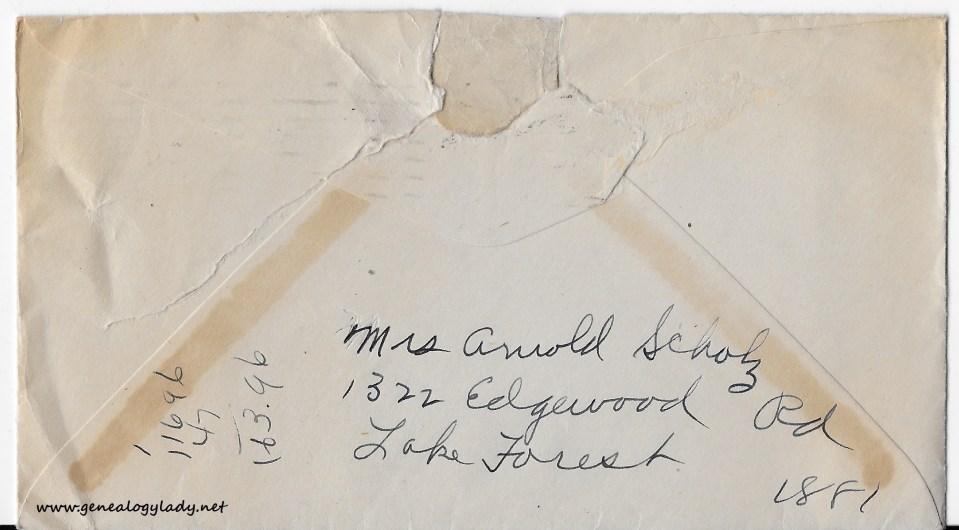 Mrs Arnold Scholz
1322 Edgewood Rd
Lake Forest
1881
1
116 96
47
163.96
www.genealogylady.net